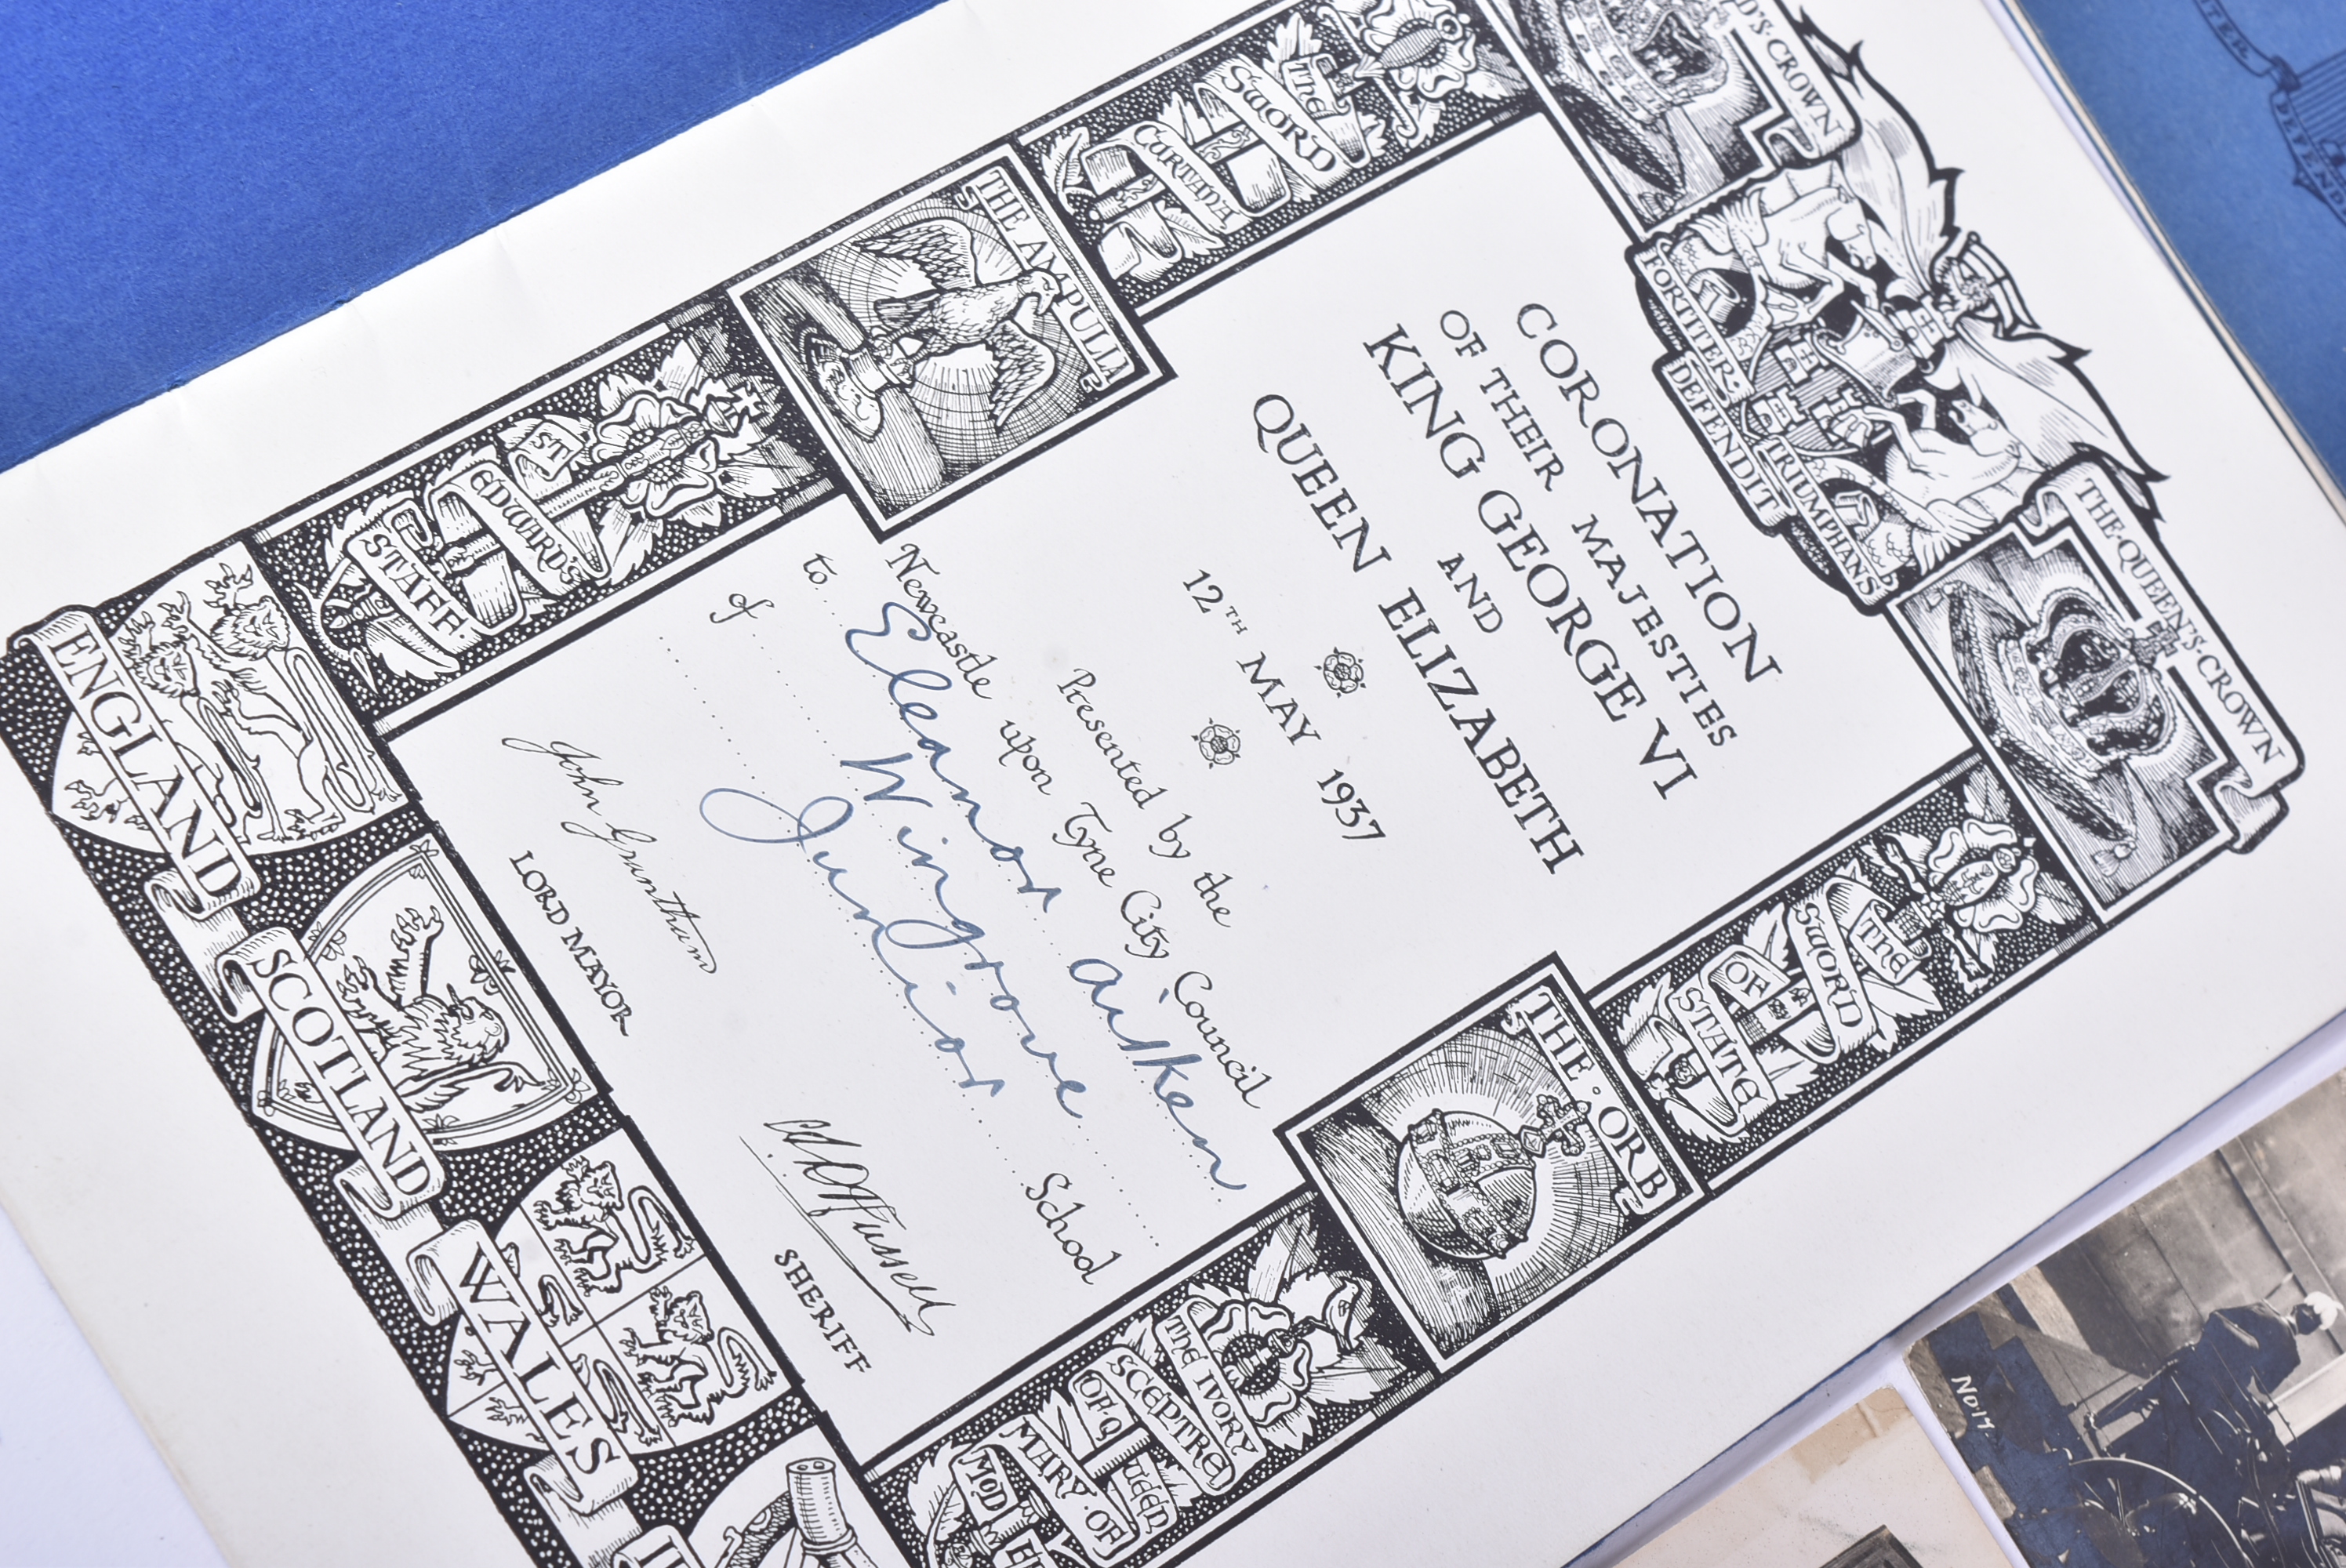 D'S·CROWN
FORTITER·
DEFENDIT
TRIUMPHANS
THE·QUEEN'S·CROWN
CORONATION
OF THEIR MAJESTIES
KING GEORGE VI
AND
QUEEN ELIZABETH
12TH MAY 1937
Presented by the
Newcastle upon Tyne City Council
to Eleanor Aitken
of Wingrove
Junior School
John Grantham
LORD MAYOR
SHERIFF
THE
SWORD
CURTANA
THE AMPULLA
ST
EDWARD'S
STAFF·
THE
SWORD
OF
STATE
THE·ORB
THE IVORY
SCEPTRE
OF·Q
MARY·OF
MOD
ENGLAND
SCOTLAND
WALES
No 17